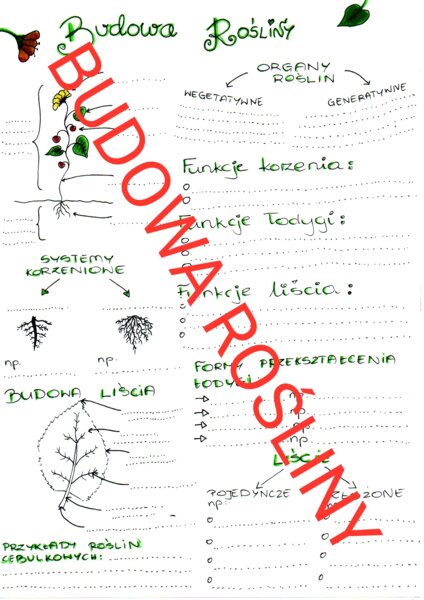 Budowa Rośliny
ORGANY
ROŚLIN
WEGETATYWNE
GENERATYWNE
Funkcje korzenia:
Funkcje łodygi:
SYSTEMY
KORZENIONE
Funkcje liścia:
np.
np.
FORMY PRZEKSZTAŁCENIA
ŁODYGI
np.
np.
np.
np.
BUDOWA LIŚCIA
LIŚCIE
POJEDYNCZE
np:
ZŁOŻONE
np:
PRZYKŁADY ROŚLIN
CEBULKOWYCH:
BUDOWA ROŚLINY